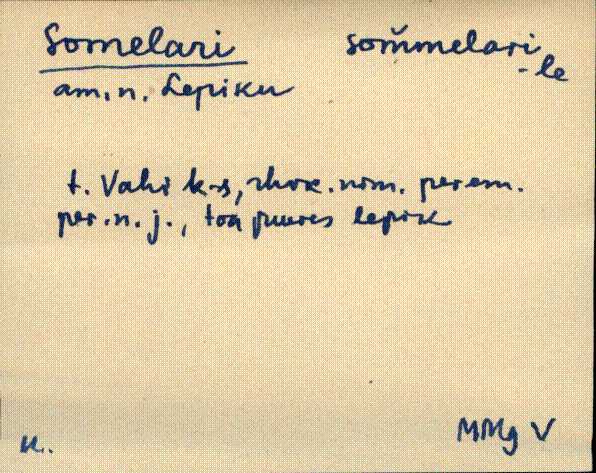 Somelari som̆melari
-le
am. n. Lepiku
t. Vahi k-s, rhvk. nim. perem.
per. n. j., toa juures lepik
K. MMg V